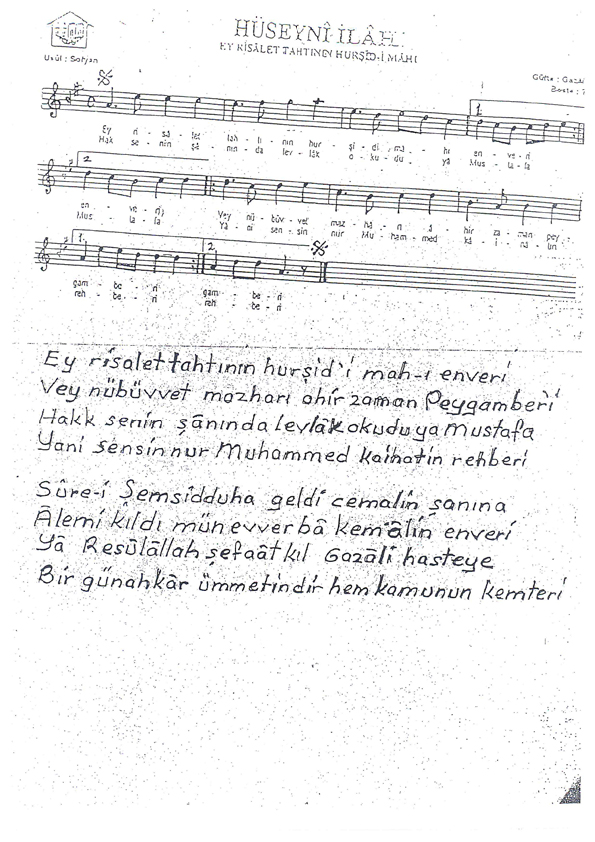 HÜSEYNÎ İLÂHİ
EY RİSÂLET TAHTININ HURŞÎD-İ MÂHI
Usûl : Sofyan
Güfte :
Beste :
1.
Ey ri - sâ - let tah - tı - nın hur - şi - di mâ - hı en - ve - ri
Hak se - nin şâ - nın - da lev - lâk o - ku - du yâ Mus - ta - fa
2.
en - ve - ri Vey nü - büv - vet maz - ha - rı â - hir za - man pey
Mus - ta - fa Yâ - ni sen - sin nur Mu - ham - med kâ - i - na - tın
1. 2.
gam - be - ri gam - be - ri
reh - be - ri reh - be - ri
Ey risalet tahtının hurşid'i mah-ı enveri
Vey nübüvvet mazharı ahir zaman Peygamberi
Hakk senin şânında levlâk okudu ya Mustafa
Yani sensin nur Muhammed kainatin rehberi
Sûre-i Şemsidduha geldi cemalin şanına
Âlemi kıldı münevver bâ kemâlin enveri
Yâ Resûlâllah şefaât kıl Gazâli hasteye
Bir günahkâr ümmetindir hem kamunun kemteri